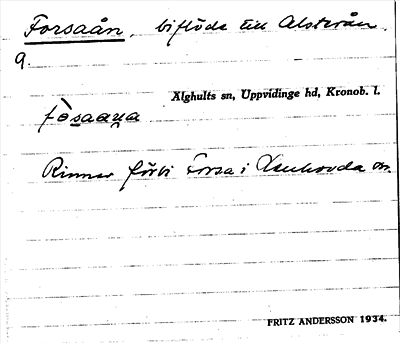 Forsaån, biflöde till Alsterån.
9.
Älghults sn, Uppvidinge hd, Kronob. l.
fòsaaṇa
Rinner förbi Forsa i Lenhovda sn.
FRITZ ANDERSSON 1934.